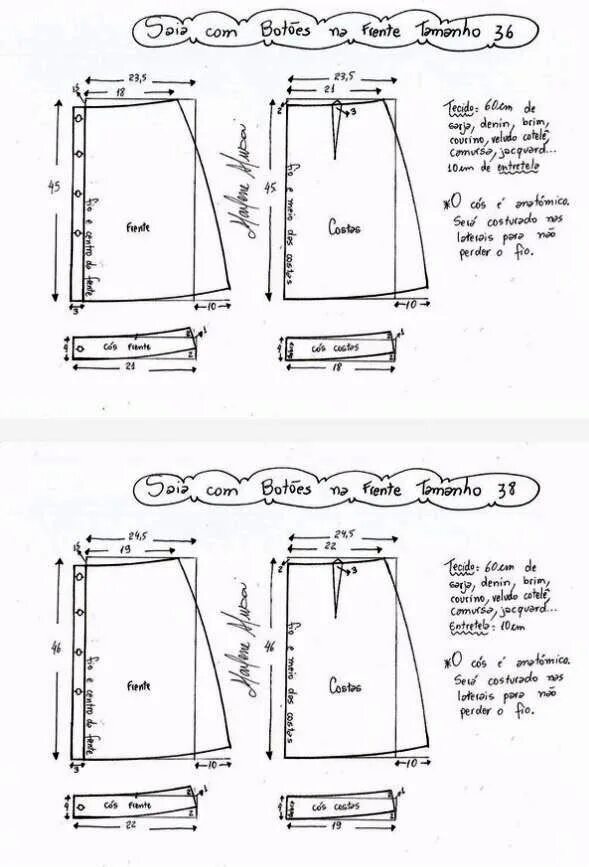 Saia com Botões na Frente Tamanho 36
23,5
18
1,5
45
fio e centro da frente
Frente
3
10
Marlene Mukai
23,5
21
2
3
45
fio e meio das costas
Costas
10
Tecido: 60cm de
sarja, denin, brim,
courino, veludo cotelê,
camursa, jacquard...
10cm de entretela
*O cós é anatômico.
Será costurado nas
laterais para não
perder o fio.
4
cós frente
2
1
2
21
4
cós costas
2
1
2
18
Saia com Botões na Frente Tamanho 38
24,5
19
1,5
46
fio e centro da frente
Frente
3
10
Marlene Mukai
24,5
22
2
3
46
fio e meio das costas
Costas
10
Tecido: 60cm de
sarja, denin, brim,
courino, veludo cotelê,
camursa, jacquard...
Entretela: 10cm
*O cós é anatômico.
Será costurado nas
laterais para não
perder o fio.
4
cós frente
2
1
2
22
4
cós costas
2
1
2
19